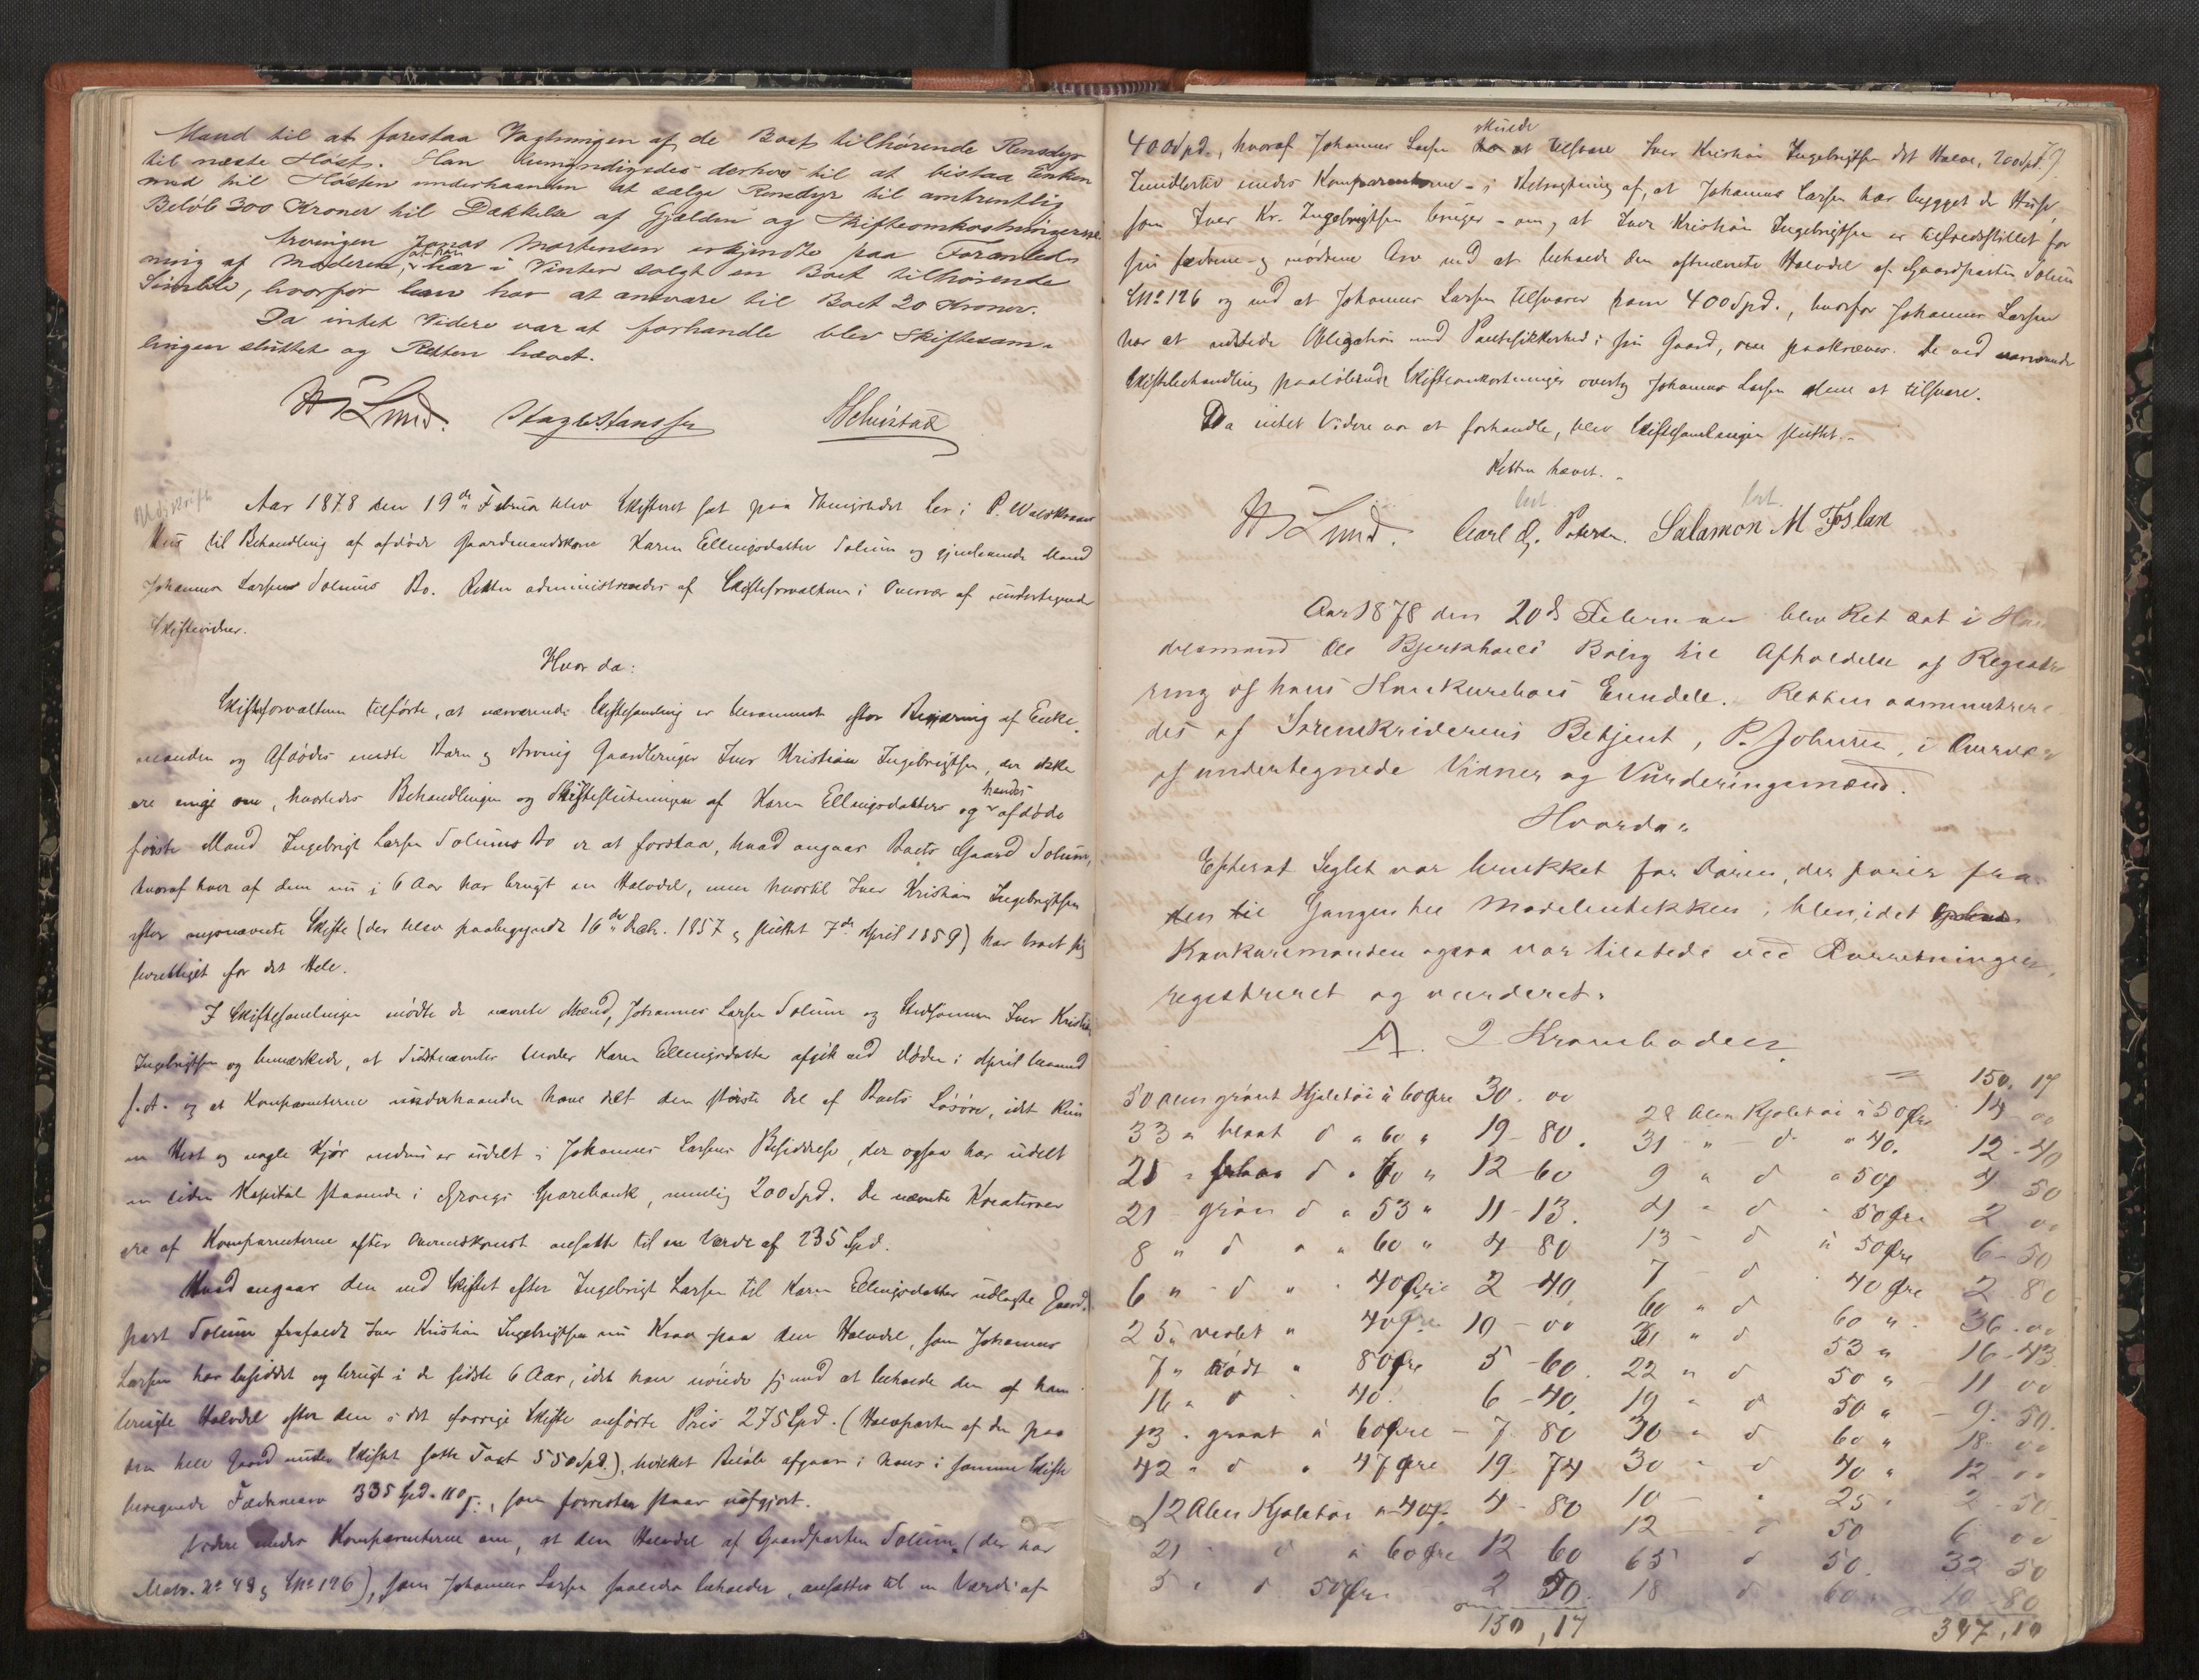 Mand til at forestaa Vogtningen af de Boet tilhørende Rensdyr
til næste Høst. Han bemyndigedes derhos til at bistaa Enken
med til Høsten underhaanden at sælge Rensdyr til omtrentlig
Beløb 300 Kroner til Dækkelse af Gjælden og Skifteomkostningerne
Arvingen Jonas Mortensen erkjendte paa Foranled-
ning af Moderen, at han har i Vinter solgt en Boet tilhørende
Simle, hvorfor han har at ansvare til Boet 20 Kroner.
Da intet Videre var at forhandle blev Skiftesam-
lingen sluttet og Retten hævet.
Lund. Hansen
Udskrift
Aar 1878 den 19de Februar blev Skifteret sat paa Thingstedet hos P.
Huus til Behandling af afdøde Gaardmandskone Karen Ellingsdatter Solum og gjenlevende Mand
Johannes Larsens Solums Bo. Retten administreredes af Skifteforvalteren i Overvær af undertegnede
Skiftevidner.
Hvor da:
Skifteforvalteren tilførte, at nærværende Skiftesamling er berammet efter Begjæring af Enke-
manden og Afdødes eneste Barn og Arving Gaardbruger Iver Kristian Ingebrigtsen, der ikke
ere enige om, hvorledes Behandlingen og Skifteslutningen af Karen Ellingsdatters og hendes afdøde
første Mand Ingebrigt Larsen Solums Bo er at forstaa, hvad angaar Boets Gaard Solum,
hvoraf hver af dem nu i 6 Aar har brugt en Halvdel, men hvortil Iver Kristian Ingebrigtsen
efter nysnævnte Skifte (der blev paabegyndt 16de Decbr. 1857 og sluttet 7de April 1859) har troet sig
berettiget for det Hele.
I Skiftesamlingen mødte de nævnte Mænd, Johannes Larsen Solum og Stedsønnen Iver Kristian
Ingebrigtsen og bemærkede, at Sidstnævntes Moder Karen Ellingsdatter afgik ved Døden i April Maaned
f. A. og at Komparenterne underhaanden have delt den største Del af Boets Løsøre, idet kun
en Hest og nogle Kjør endnu er udelt i Johannes Larsens Besiddelse, der ogsaa har udelt
en liden Kapital staaende i Grongs Sparebank, nemlig 200 Spd. De nævnte Kreaturer
ere af Komparenterne efter Overenskomst ansatte til en Værdi af 235 Spd.
Hvad angaar den ved Skiftet efter Ingebrigt Larsen til Karen Ellingsdatter udlagte Gaard-
part Solum frafaldt Iver Kristian Ingebrigtsen nu Krav paa den Halvdel, som Johannes
Larsen har besiddet og brugt i de sidste 6 Aar, idet han nøiede sig med at beholde den af ham
brugte Halvdel efter den i det forrige Skifte anførte Pris 275 Spd. (Halvparten af den paa
den hele Gaard under Skiftet satte Taxt 550 Spd.), hvilket Beløb afgaar i hans i samme Skifte
beregnede Fædrenearv 335 Spd. 110 s., som forresten staar uopgjort.
Videre enedes Komparenterne om, at den Halvdel af Gaardparten Solum (der har
Matr. No 48 og LNo 126), som Johannes Larsen saaledes beholder, ansættes til en Værdi af
79
400 Spd., hvoraf Johannes Larsen skulde tilsvare Iver Kristian Ingebrigtsen det Halve, 200 Spd.
Imidlertid enedes Komparenterne - i Betragtning af, at Johannes Larsen har bygget de Huse,
som Iver Kr. Ingebrigtsen bruger - om, at Iver Kristian Ingebrigtsen er tilfredsstillet for
sin fædrene og mødrene Arv ved at beholde den oftnævnte Halvdel af Gaardparten Solum
LNo 126 og ved at Johannes Larsen tilsvarer ham 400 Spd., hvorfor Johannes Larsen
har at udstede Obligation med Pantesikkerhed i sin Gaard, om paakræves. De ved nærværende
Skiftebehandling paaløbende Skifteomkostninger overtog Johannes Larsen alene at tilsvare.
Da intet Videre var at forhandle, blev Skiftesamlingen sluttet.
Retten hævet.
Lund. Carl Petersen. Salamon M Foslan
Aar 1878 den 20de Februar blev Ret sat i Han-
delsmand Ole Bjerkhoels Bolig til Afholdelse af Registre-
ring af hans Konkursboes Eiendele. Retten administrere-
des af Sorenskriverens Betjent, P. Johnsen, i Overvær
af undertegnede Vidner og Vurderingsmænd.
Hvorda:
Efterat Seglet var brukket for Døren, der fører fra
den til Gangen til , blev, idet
Konkursmanden ogsaa var tilstede ved Forretningen,
registreret og vurderet.
A. I Kramboden
150. 17
50 Alen grønt Kjoletøi à 60 Øre 30. 00 28 Alen Kjoletøi à 50 Øre 14 00
33 " blaat d " 60 " 19 - 80. 31 " d " 40. 12 - 40
21 " d " 60 " 12 - 60 9 " d " 50 Ø 4 50
21 - grøn d " 53 " 11 - 13. 4 " d " 50 Øre 2 00
8 " d " " 60 " 4 - 80 13 - d à 50 Øre 6 - 50
6 " - d " 40 Øre 2 - 40. 7 - d 40 Øre 2 80
25 " violet " 40 Øre 10 - 00 60 " d 60 " 36 . 00
7 " rødt " 80 Øre 5 - 60. 31 " d 53 " 16 - 43
16 " d - 40. 6 - 40. 22 " d 50 " 11 00
13 - graat à 60 Øre - 7 - 80 19 " d 50 " 9. 50.
42 " d " 47 Øre 19. 74 30 " d 60 " 18 00
12 Alen Kjoletøi à 40 Ø. 4 - 80 30 " d 40 " 12 00
21 " d à 60 Øre 12 60 10 - " 25 " 2 - 50
5 " d 50 Øre 2 50. 12 d 50 6 00
65 d 50. 32 50
18 d 60 10 80
150, 17 347, 10